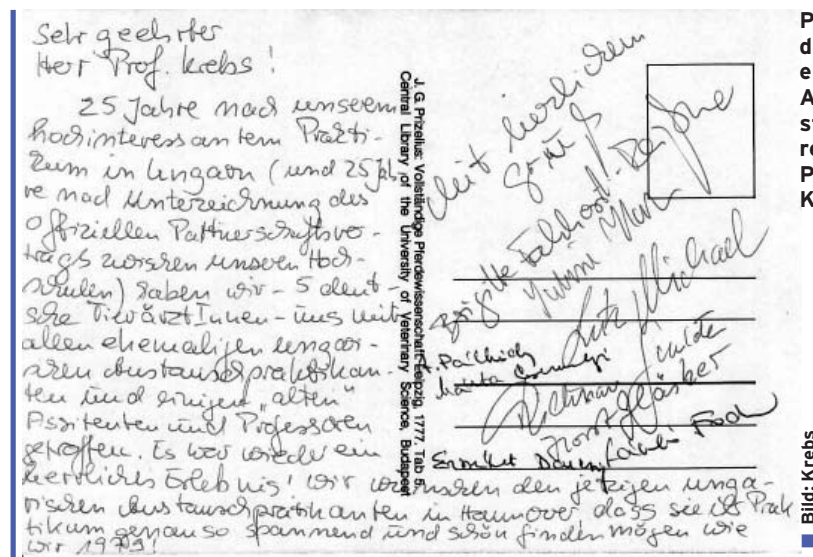 Sehr geehrter
Herr Prof. Krebs!
25 Jahre nach unserem
hochinteressantem Prakti-
kum in Ungarn (und 25 Jah-
re nach Unterzeichnung des
offiziellen Partnerschaftsver-
trags zwischen unseren Hoch-
schulen) haben wir - 5 deut-
sche TierärztInnen - uns mit
allen ehemaligen ungari-
schen Austauschpraktikan-
ten und einigen „alten"
Assitenten und Professoren
getroffen. Es war wieder ein
herrliches Erlebnis! Wir wünschen den jetzigen unga-
rischen Austauschpraktikanten in Hannover dass sie ihr Prak
tikum genauso spannend und schön finden mögen wie
wir 1979!
J. G. Prizelius: Vollständige Pferdewissenschaft Leipzig, 1777. Tab 5.
Central Library of the University of Veterinary Science, Budapest
Mit herzlichem
Gruß
Brigitte
Michael
Horst
Bild: Krebs